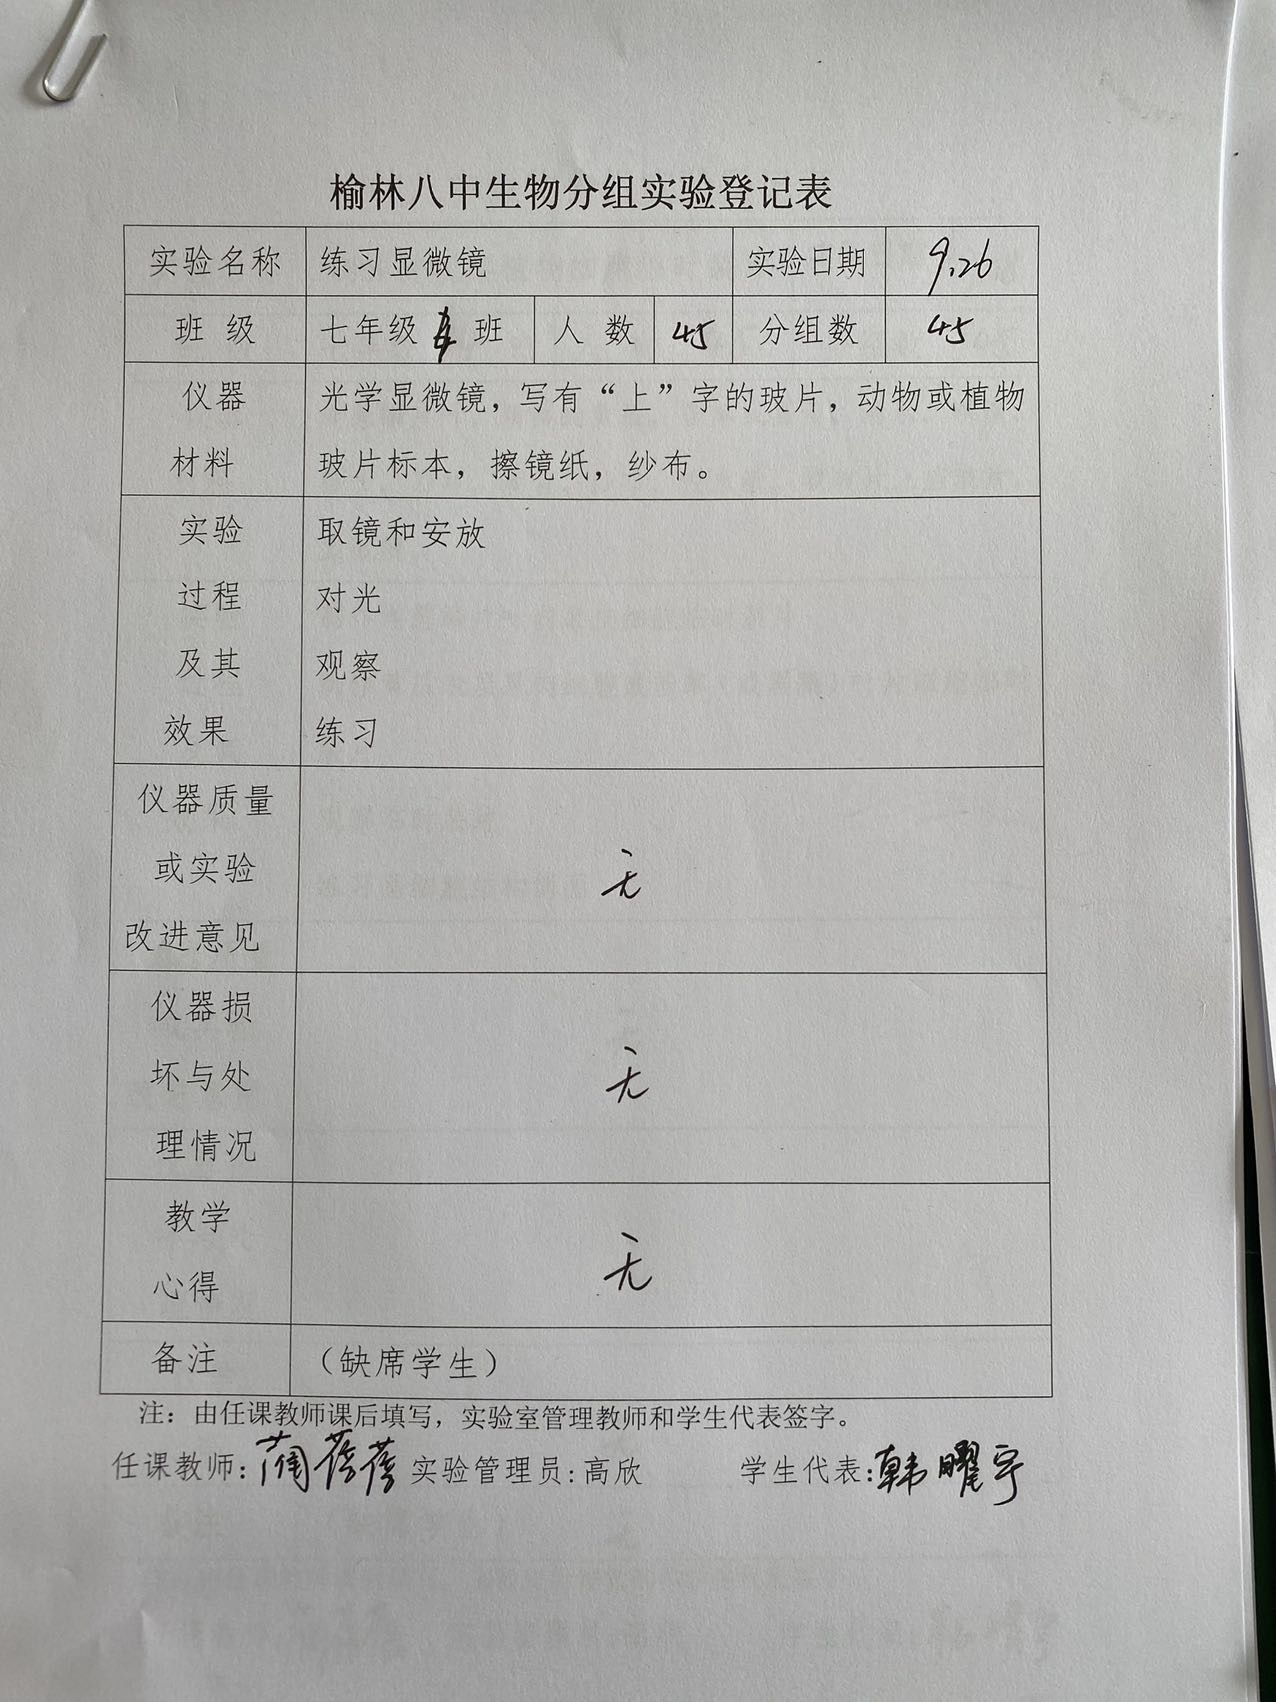 榆林八中生物分组实验登记表
实验名称 练习显微镜 实验日期 9.26
班 级 七年级 班 人 数 45 分组数 45
仪器 光学显微镜，写有“上”字的玻片，动物或植物
材料 玻片标本，擦镜纸，纱布。
实验 取镜和安放
过程 对光
及其 观察
效果 练习
仪器质量
或实验 无
改进意见
仪器损
坏与处 无
理情况
教学
心得 无
备注 （缺席学生）
注：由任课教师课后填写，实验室管理教师和学生代表签字。
任课教师: 蓓蓓 实验管理员:高欣 学生代表:韩曜宇